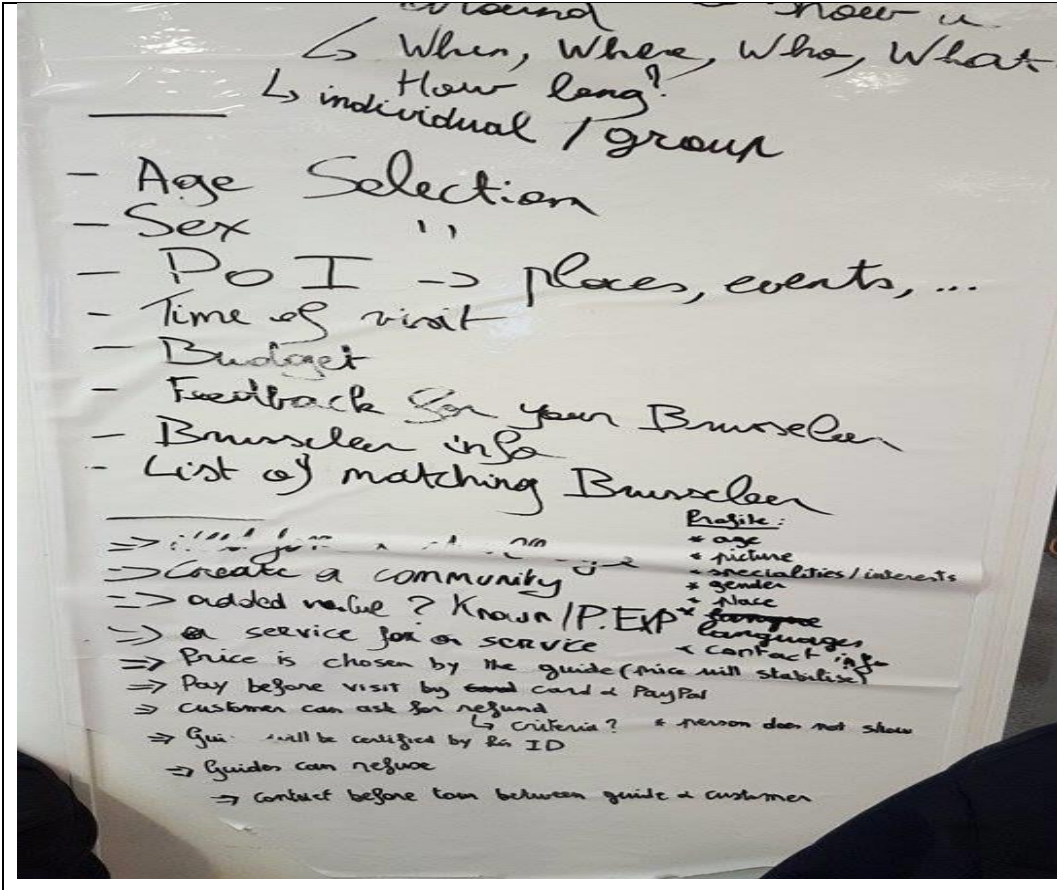 around show u
↳ When, Where, Who, What
How long?
↳ individual / group
- Age Selection
- Sex ''
- PoI -> places, events, ...
- Time of visit
- Budget
- Feedback for your Brusseleer
- Brusseleer info
- List of matching Brusseleer
Profile:
* age
* picture
* specialities / interests
* gender
* place
* languages
* contact info
=> Create a community
=> added value ? Known/P.EXP
=> a service for a service
=> Price is chosen by the guide (price will stabilise)
=> Pay before visit by card & PayPal
=> customer can ask for refund
↳ criteria? * person does not show
=> Gui will be certified by his ID
=> Guides can refuse
=> contact before tour between guide & customer